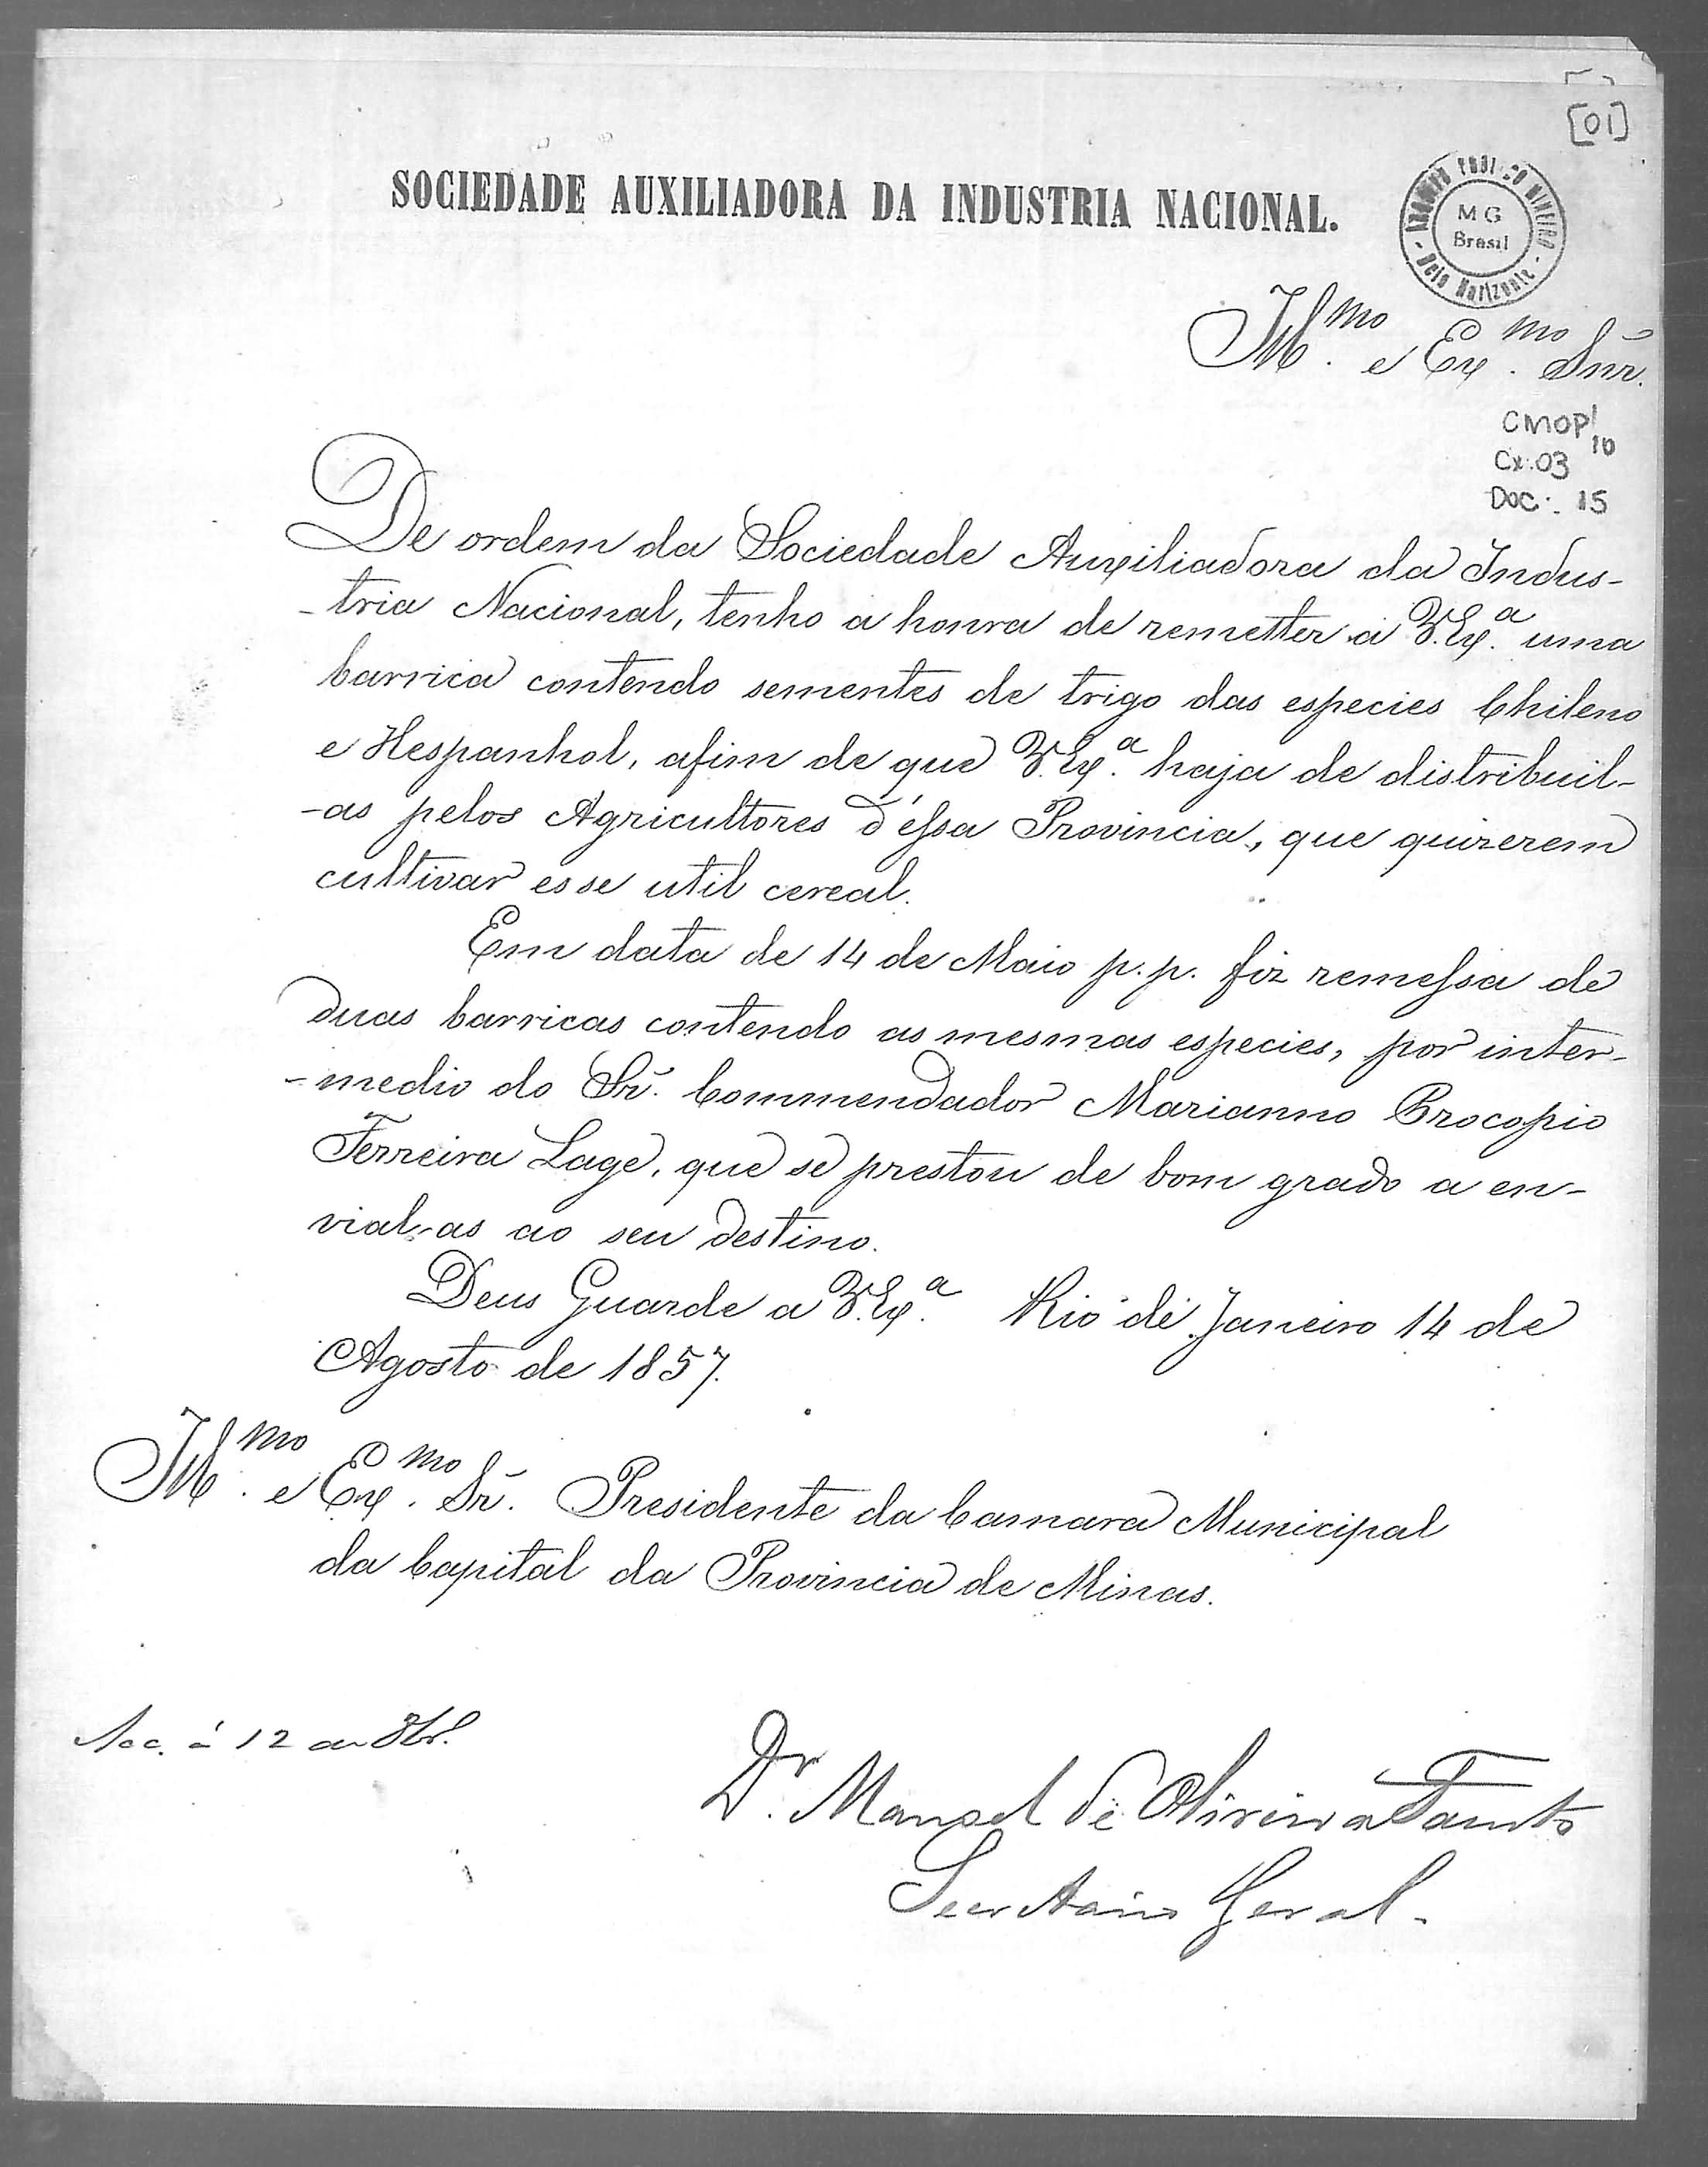 [01]
SOCIEDADE AUXILIADORA DA INDUSTRIA NACIONAL.
ARQUIVO PUBLICO MINEIRO
MG
Brasil
Belo Horizonte
Ill.mo e Ex.mo Snr.
CMOP
10
Cx.03
DOC. 15
De ordem da Sociedade Auxiliadora da Indus-
-tria Nacional, tenho a honra de remetter á V.Ex.a uma
barrica contendo sementes de trigo das especies Chileno
e Hespanhol, afim de que V.Ex.a haja de distribuil-
-as pelos Agricultores d'éssa Provincia, que quizerem
cultivar esse util cereal.
Em data de 14 de Maio p.p. fiz remessa de
duas barricas contendo as mesmas especies, por inter-
-medio do Sr. Commendador Marianno Procopio
Ferreira Lage, que se prestou de bom grado a en-
vial-as ao seu destino.
Deus Guarde a V.Ex.a Rio de Janeiro 14 de
Agosto de 1857.
Ill.mo e Ex.mo Sr. Presidente da Camara Municipal
da Capital da Provincia de Minas.
Acc. á 12 de 8br.
Dr. Manoel de Oliveira Fausto
Secretario Geral.